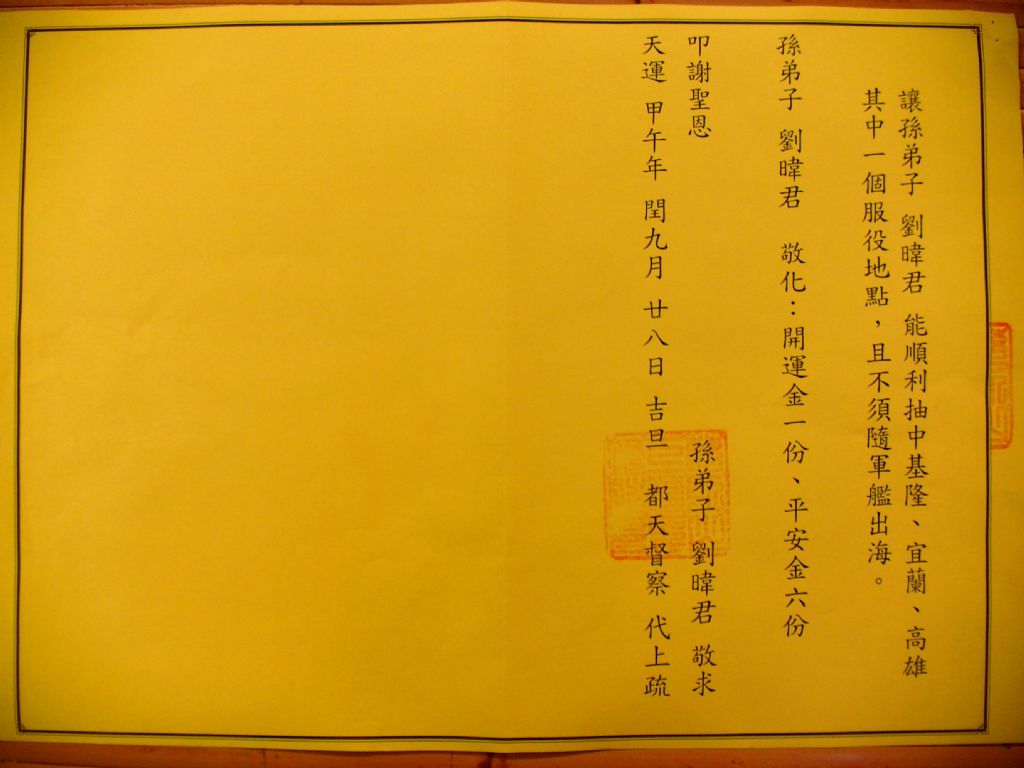 讓孫弟子 劉暐君 能順利抽中基隆、宜蘭、高雄
其中一個服役地點，且不須隨軍艦出海。
孫弟子 劉暐君 敬化：開運金一份、平安金六份
叩謝聖恩 孫弟子 劉暐君 敬求
天運 甲午年 閏九月 廿八日 吉旦 都天督察 代上疏